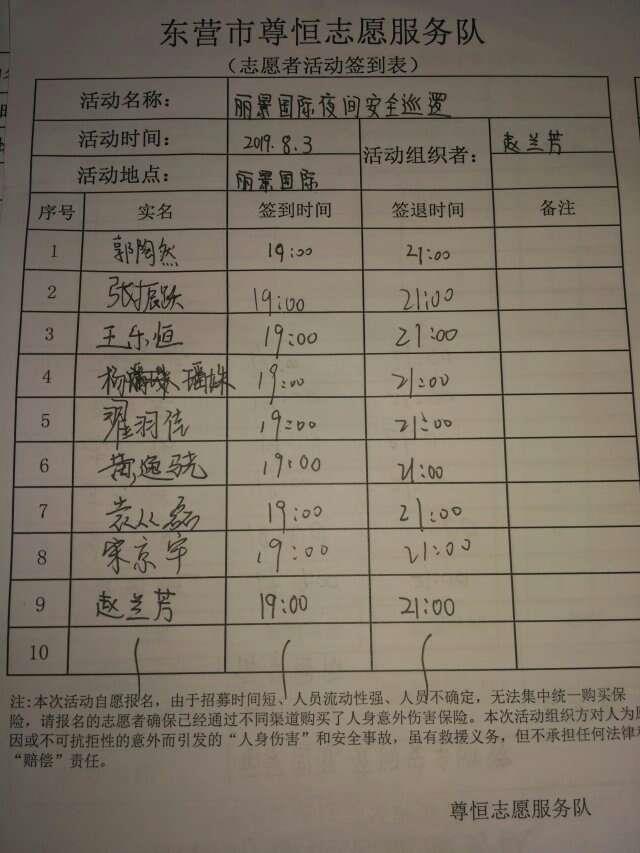 东营市尊恒志愿服务队
（志愿者活动签到表）
活动名称： 丽景国际夜间安全巡逻
活动时间： 2019.8.3 活动组织者： 赵兰芳
活动地点： 丽景国际
序号 实名 签到时间 签退时间 备注
1 郭陶然 19:00 21:00
2 张振跃 19:00 21:00
3 王乐恒 19:00 21:00
4 杨 瑶姝 19:00 21:00
5 翟羽佳 19:00 21:00
6 黄逸骁 19:00 21:00
7 袁从磊 19:00 21:00
8 宋京宇 19:00 21:00
9 赵兰芳 19:00 21:00
10
注:本次活动自愿报名，由于招募时间短、人员流动性强、人员不确定，无法集中统一购买保
险，请报名的志愿者确保已经通过不同渠道购买了人身意外伤害保险。本次活动组织方对人为原
因或不可抗拒性的意外而引发的“人身伤害”和安全事故，虽有救援义务，但不承担任何法律和
“赔偿”责任。
尊恒志愿服务队